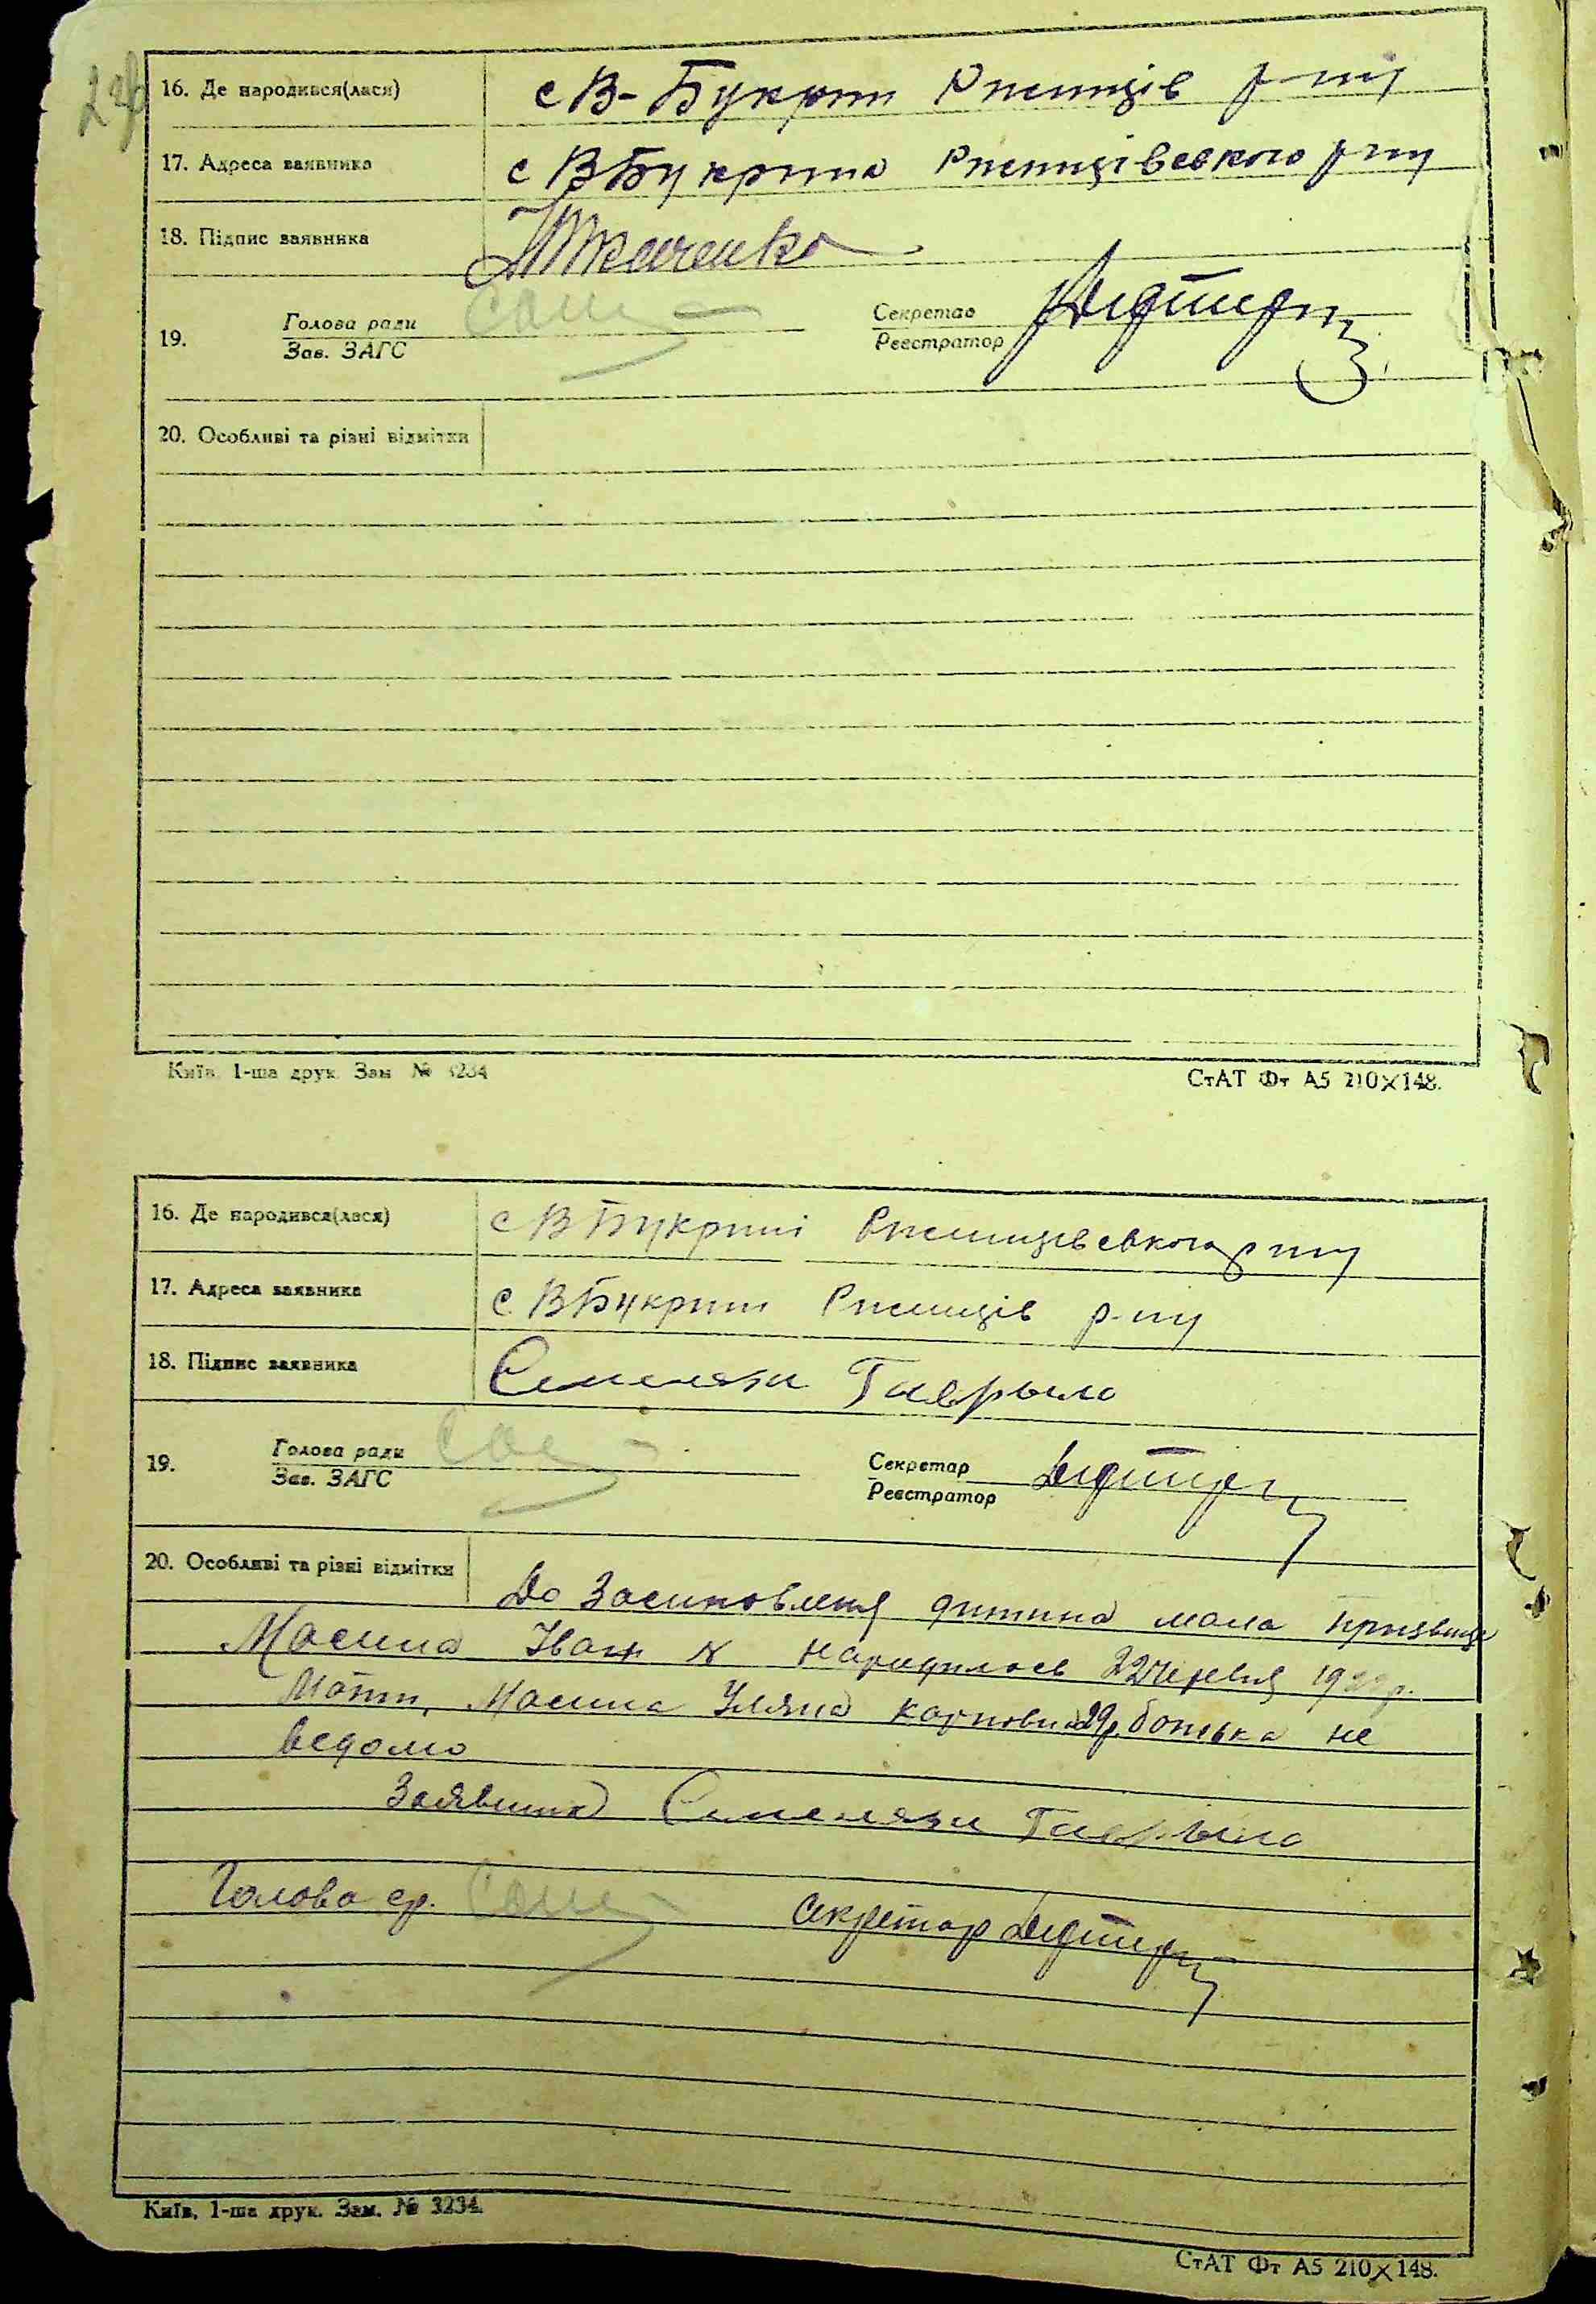 16. Де народився(лася) с В-Букрин Ржищів р-ну
17. Адреса заявника с ВБукрина Ржищівського р-ну
18. Підпис заявника Ткаченко
19. Голова ради Секретар
Зав. ЗАГС Реєстратор
20. Особливі та різні відмітки
Київ, 1-ша друк. Зам. № 3234
СтАТ Фт А5 210×148.
16. Де народився(лася) с ВБукрині Ржищівського р-ну
17. Адреса заявника с. ВБукрин Ржищів р-ну
18. Підпис заявника Гаврыло
19. Голова ради Секретар
Зав. ЗАГС Реєстратор
20. Особливі та різні відмітки
До Засиновленя дитина мала призвище
Іван народилось 22 червня
Мати, Уляна Карповна 29р. батька не
ведомо
Заявник Гаврыло
Голова ср. Секретар
Київ, 1-ша друк. Зам. № 3234.
СтАТ Фт А5 210×148.